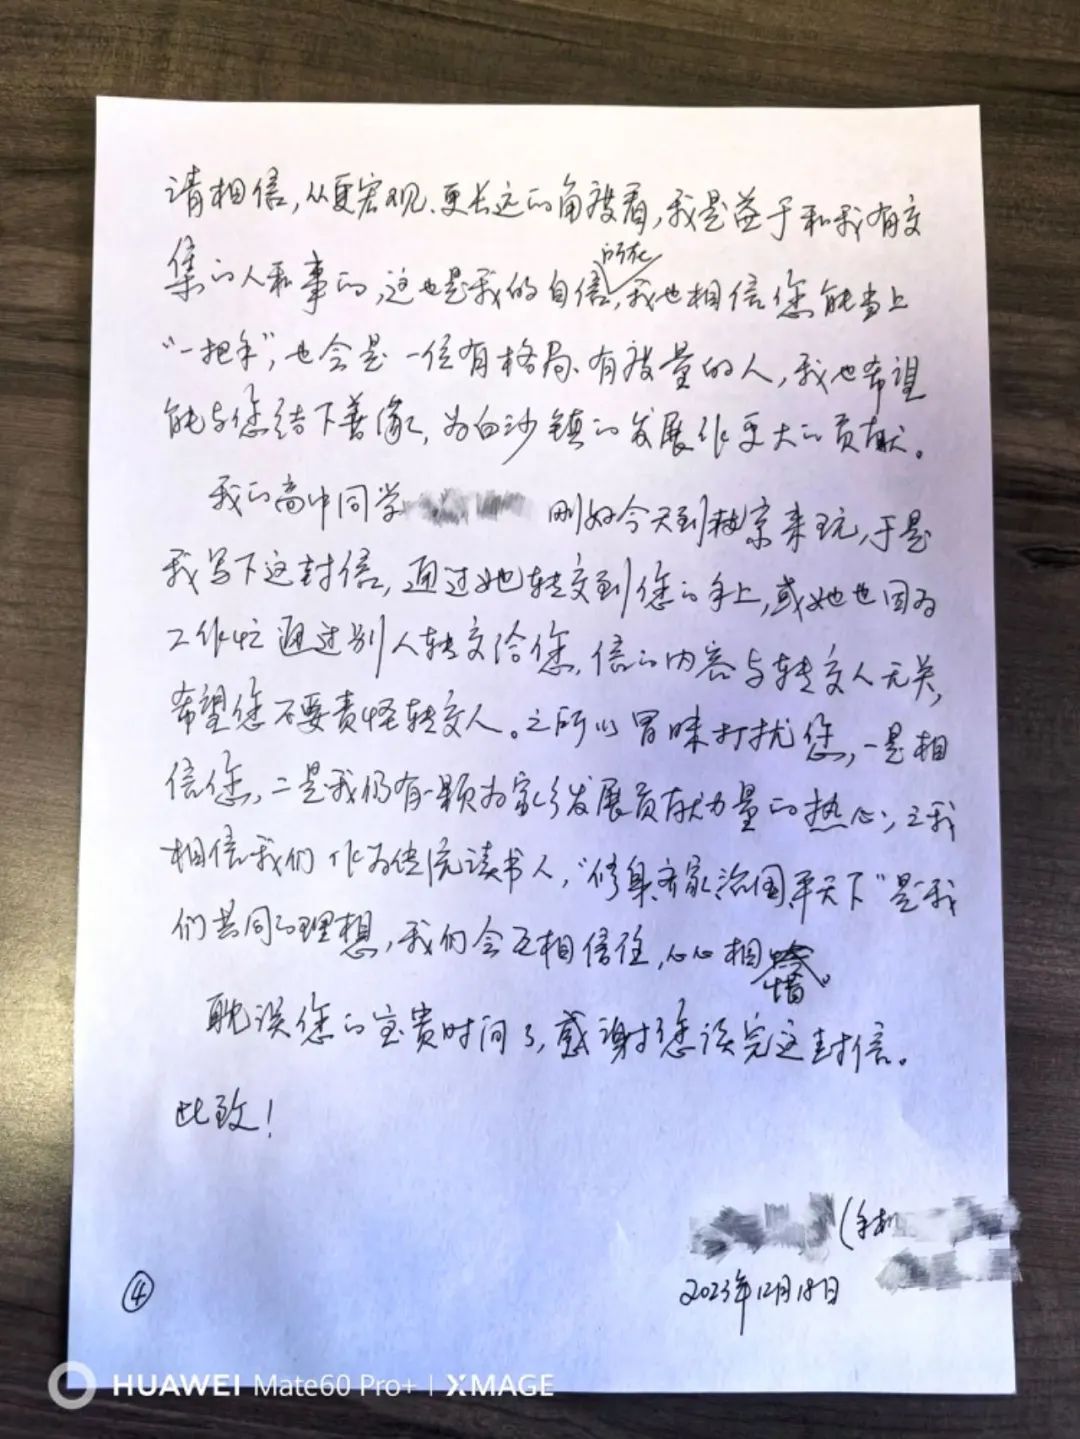 请相信,从更宏观、更长远的角度看,我是益于和我有交
集的人和事的,这也是我的自信所在,我也相信您能当上
“一把手”,也会是一位有格局、有度量的人,我也希望
能与您结下善缘,为白沙镇的发展作更大的贡献。
我的高中同学 刚好今天到 京来玩,于是
我写下这封信,通过她转交到您的手上,或她也因为
工作忙通过别人转交给您,信的内容与转交人无关,
希望您不要责怪转交人。之所以冒昧打扰您,一是相
信您,二是我仍有一颗为家乡发展贡献力量的热心,三我
相信我们作为传统读书人,“修身齐家治国平天下”是我
们共同的理想,我们会互相信任,心心相惜。
耽误您的宝贵时间了,感谢您读完这封信。
此致!
(手机
2023年12月18日
④
HUAWEI Mate60 Pro+ | XMAGE